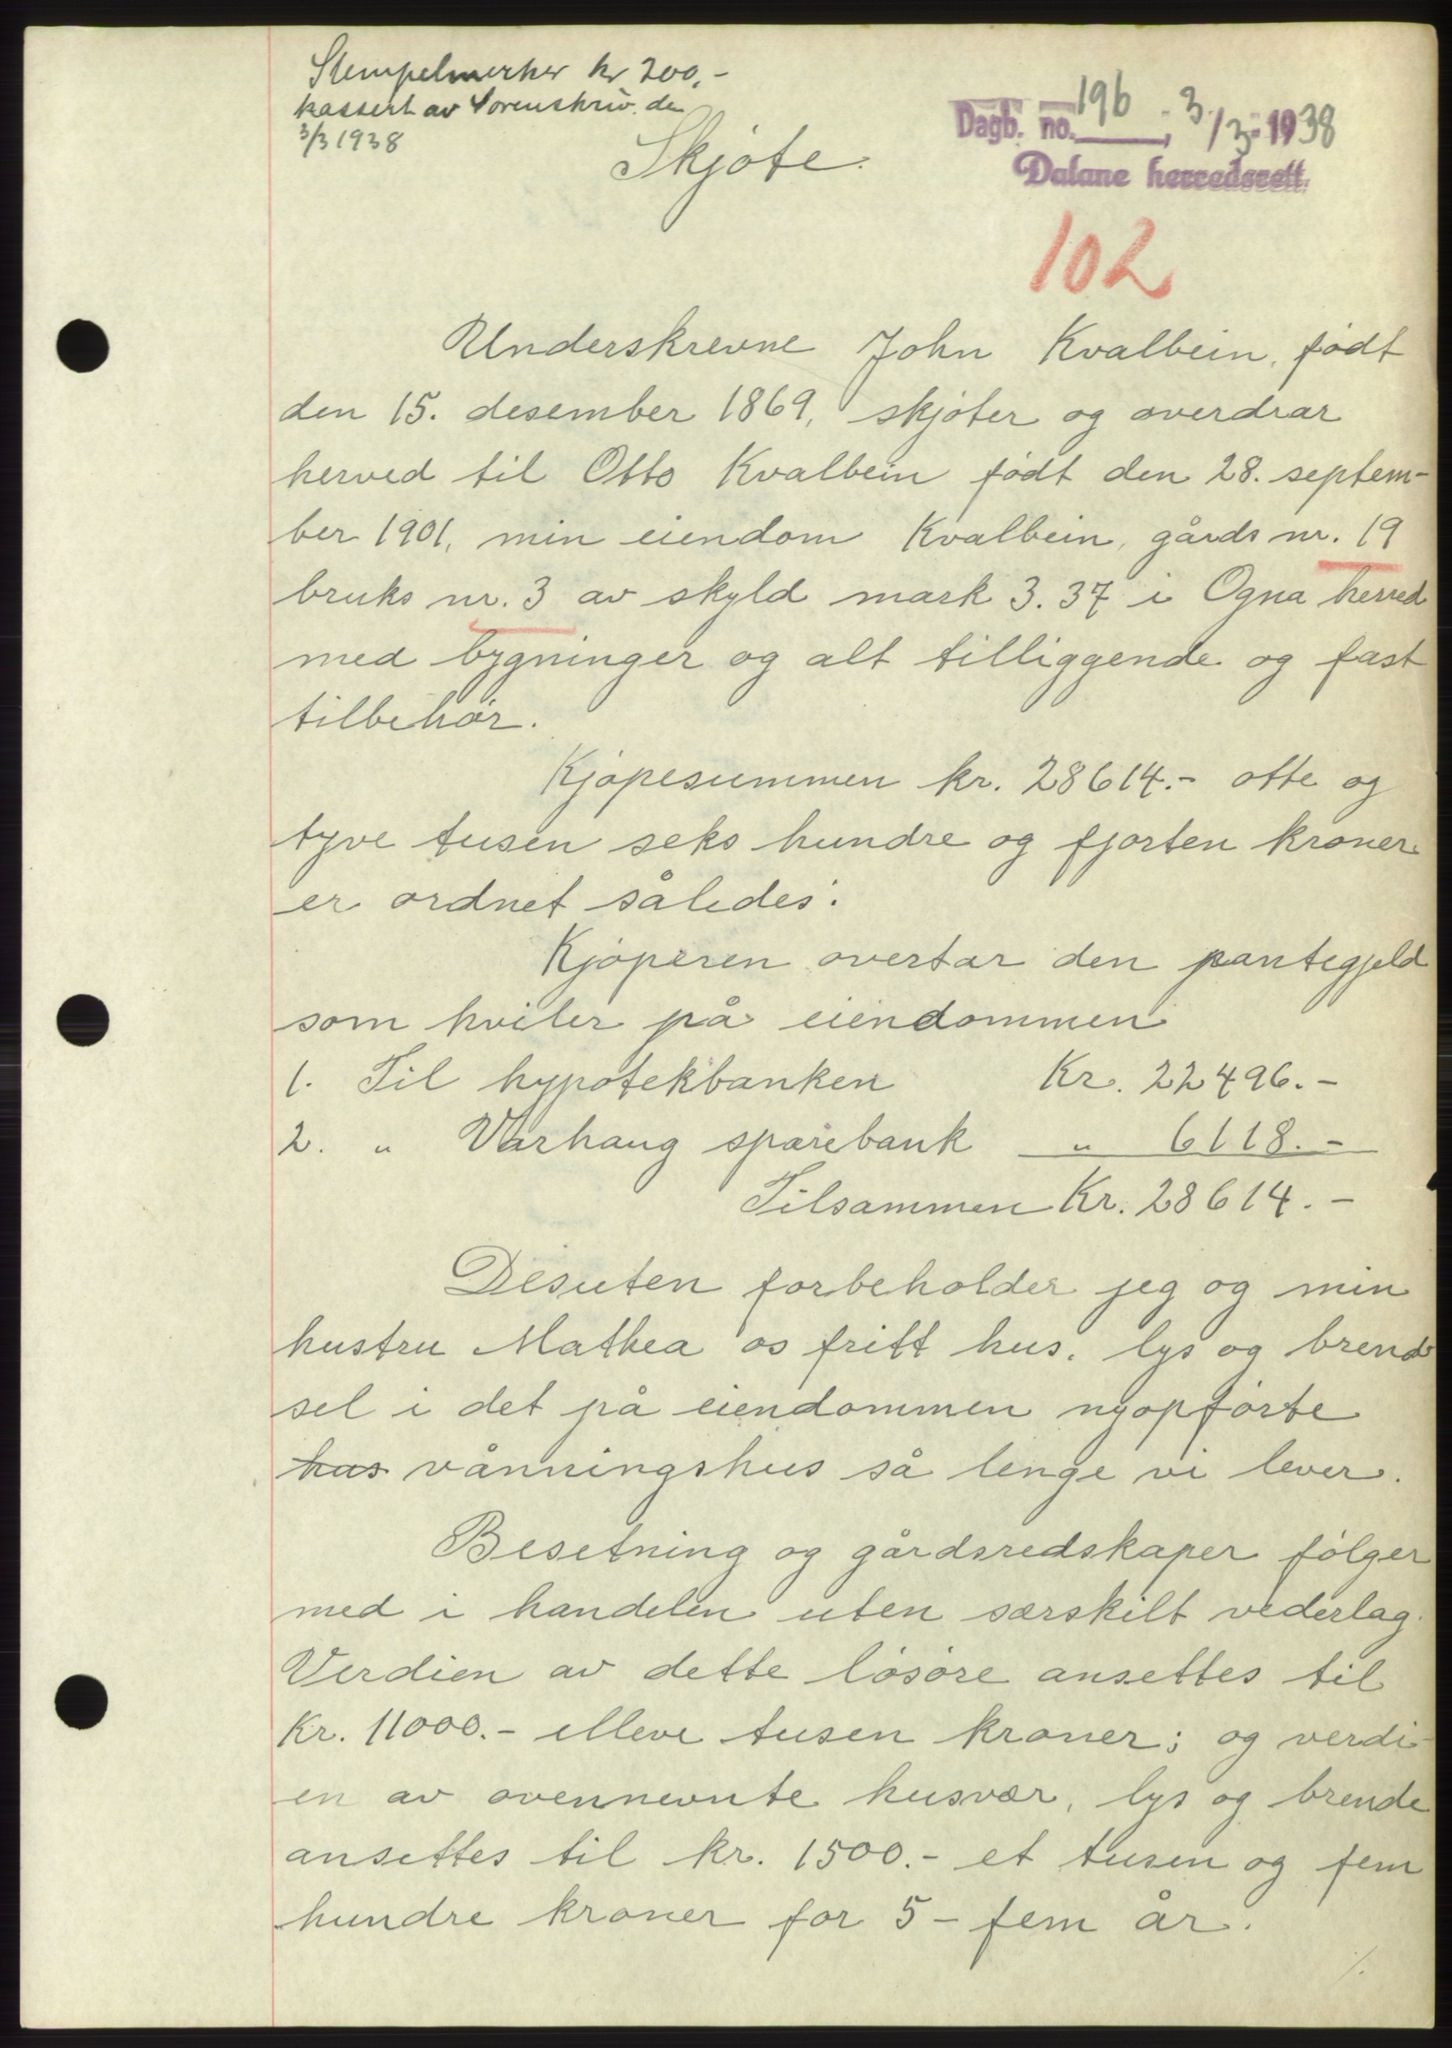 Stempelmerker kr 200,-
kassert av Sorenskriv. de
3/3 1938
Dagb. no. 196, 3/3-1938
Dalane herredsrett.
Skjøte.
102
Underskrevne John Kvalbein, født
den 15. desember 1869, skjøter og overdrar
herved til Otto Kvalbein født den 28. septem-
ber 1901, min eiendom Kvalbein, gårds nr. 19
bruks nr. 3 av skyld mark 3.37 i Ogna herred
med bygninger og alt tilliggende og fast
tilbehør.
Kjøpesummen kr. 28614.- otte og
tyve tusen seks hundre og fjorten kroner
er ordnet således:
Kjøperen overtar den pantegjeld
som hviler på eiendommen
1. Til hypotekbanken Kr. 22496.-
2. " Varhaug sparebank " 6118.-
Tilsammen Kr. 28614.-
Desuten forbeholder jeg og min
hustru Mathea os fritt hus, lys og brend-
sel i det på eiendommen nyopførte
hus vånningshus så lenge vi lever.
Besetning og gårdsredskaper følger
med i handelen uten særskilt vederlag.
Verdien av dette løsøre ansettes til
Kr. 11000.- elleve tusen kroner; og verdi-
en av ovennevnte husvær, lys og brende
ansettes til kr. 1500.- et tusen og fem
hundre kroner for 5 - fem år.
./.